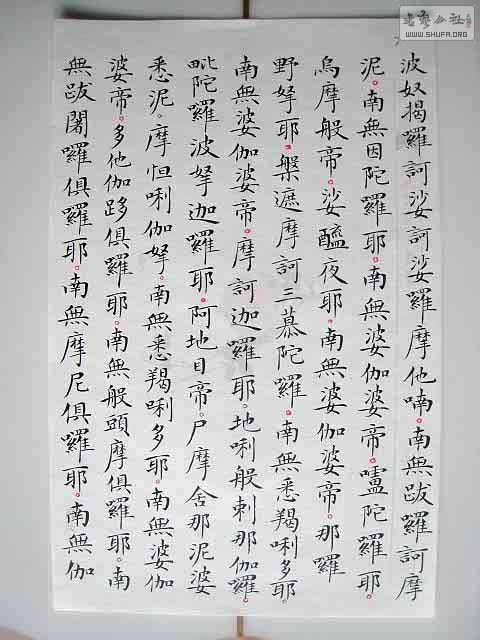 波奴揭羅訶娑訶娑羅摩他喃。南無跋羅訶摩
泥。南無因陀羅耶。南無婆伽婆帝。嚧陀羅耶。
烏摩般帝。娑醯夜耶。南無婆伽婆帝。那羅
野拏耶。槃遮摩訶三慕陀羅。南無悉羯唎多耶。
南無婆伽婆帝。摩訶迦羅耶。地唎般剌那伽羅。
毗陀羅波拏迦羅耶。阿地目帝。尸摩舍那泥婆
悉泥。摩怛唎伽拏。南無悉羯唎多耶。南無婆伽
婆帝。多他伽跢俱羅耶。南無般頭摩俱羅耶。南
無跋闍羅俱羅耶。南無摩尼俱羅耶。南無伽
WWW.SHUFA.ORG